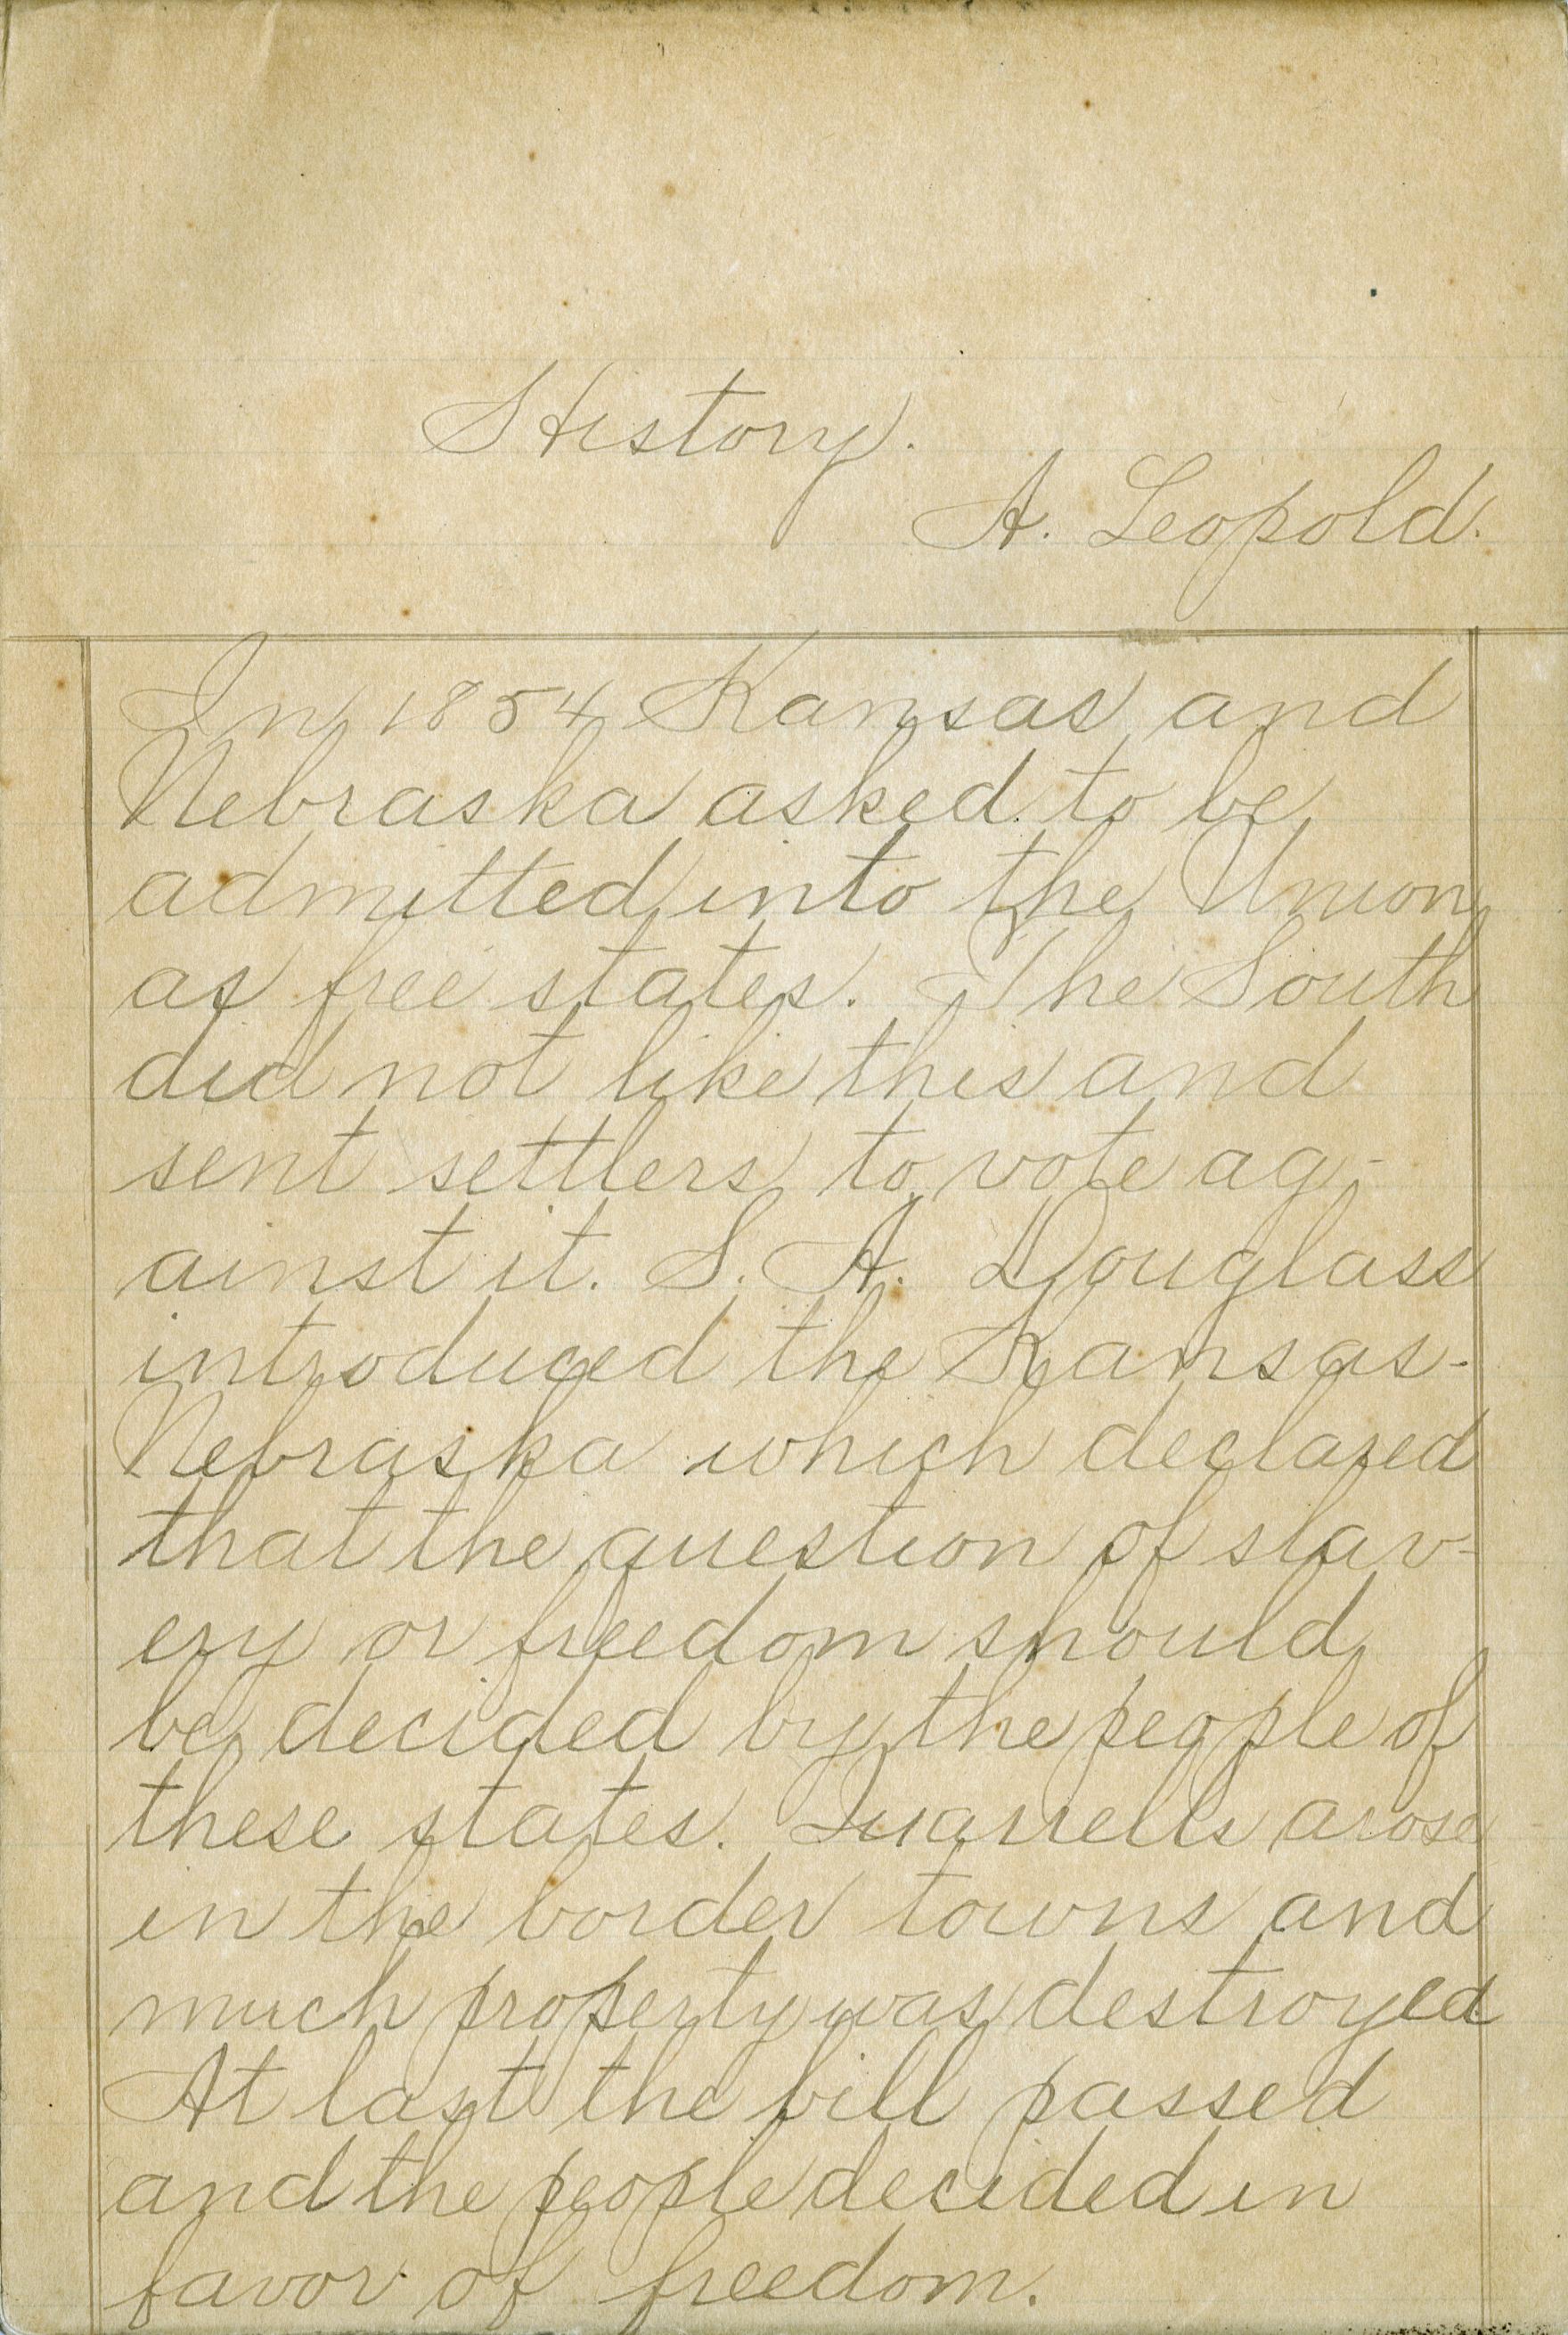 History.
A. Leopold.
In 1854 Kansas and
Nebraska asked to be
admitted into the Union
as free states. The South
did not like this and
sent settlers to vote ag-
ainst it. S. A. Douglass
introduced the Kansas-
Nebraska which declared
that the question of slav-
ery or freedom should
be decided by the people of
these states. Quarrells arose
in the border towns and
much property was destroyed
At last the bill passed
and the people decided in
favor of freedom.